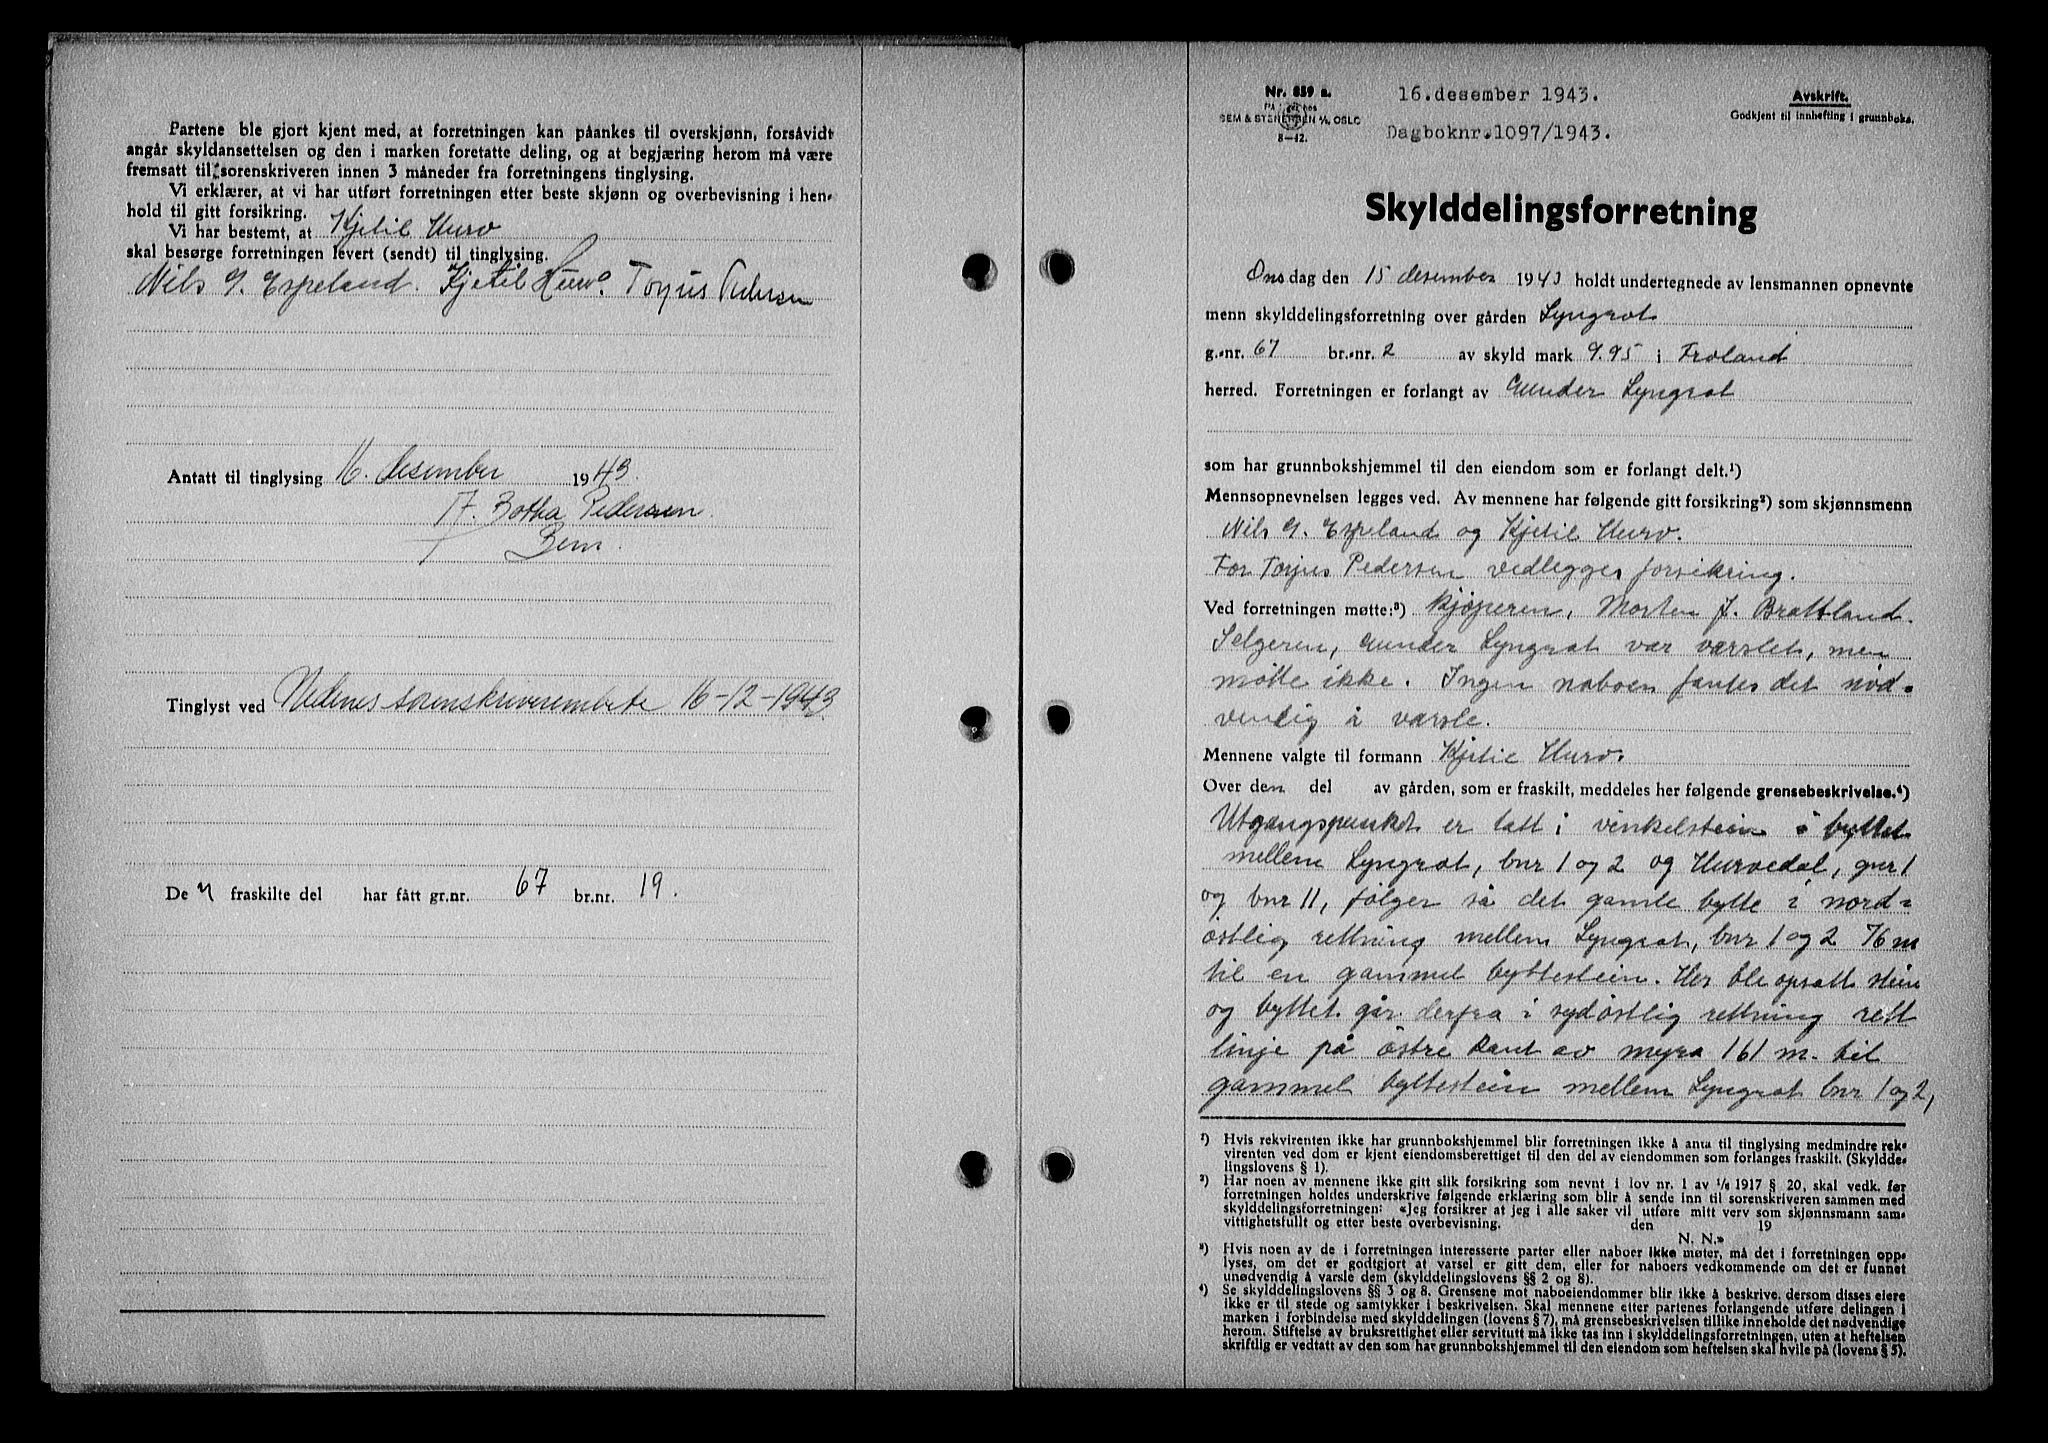 Partene ble gjort kjent med, at forretningen kan påankes til overskjønn, forsåvidt
angår skyldansettelsen og den i marken foretatte deling, og at begjæring herom må være
fremsatt til sorenskriveren innen 3 måneder fra forretningens tinglysing.
Vi erklærer, at vi har utført forretningen etter beste skjønn og overbevisning i hen-
hold til gitt forsikring.
Vi har bestemt, at Kjetil Hurv
skal besørge forretningen levert (sendt) til tinglysing.
Nils G. Espeland. Kjetil Hurv. Torjus Pedersen
Antatt til tinglysing 16. desember 1943.
Botha Pedersen.
Bem.
Tinglyst ved Nedenes sorenskriverembete 16-12-1943.
De n fraskilte del har fått gr.nr. 67 br.nr. 19.
Nr. 859 a.
SEM & STENERSEN A/S, OSLO
8—42.
16.desember 1943.
Dagboknr.1097/1943.
Avskrift.
Godkjent til innhefting i grunnboka.
Skylddelingsforretning
Ons dag den 15 desember 1943 holdt undertegnede av lensmannen opnevnte
menn skylddelingsforretning over gården Lyngrot
g.-nr. 67 br.-nr. 2 av skyld mark 9.95 i Froland
herred. Forretningen er forlangt av Gunder Lyngrot
som har grunnbokshjemmel til den eiendom som er forlangt delt.¹)
Mennsopnevnelsen legges ved. Av mennene har følgende gitt forsikring²) som skjønnsmenn
Nils G. Espeland og Kjetil Hurv.
For Torjus Pedersen vedlegges forsikring.
Ved forretningen møtte:³) Kjøperen, Morten J. Brattland.
Selgeren, Gunder Lyngrot var varslet, men
møtte ikke. Ingen naboer fantes det nød-
vendig å varsle.
Mennene valgte til formann Kjetil Hurv.
Over den del av gården, som er fraskilt, meddeles her følgende grensebeskrivelse.⁴)
Utgangspunktet er tatt i vinkelstein i byttet
mellem Lyngrot, bnr 1 og 2 og Hurvedal, gnr 1
og bnr 11, følger så det gamle bytte i nord-
østlig rettning mellem Lyngrot, bnr 1 og 2 76 m
til en gammel byttestein. Her ble opsatt stein
og byttet går derfra i sydøstlig rettning rett
linje på østre kant av myra 161 m. til
gammel byttestein mellem Lyngrot bnr 1 og 2,
¹) Hvis rekvirenten ikke har grunnbokshjemmel blir forretningen ikke å anta til tinglysing medmindre rek-
virenten ved dom er kjent eiendomsberettiget til den del av eiendommen som forlanges fraskilt. (Skyldde-
lingslovens § 1).
²) Har noen av mennene ikke gitt slik forsikring som nevnt i lov nr. 1 av 1/6 1917 § 20, skal vedk. før
forretningen holdes underskrive følgende erklæring som blir å sende inn til sorenskriveren sammen med
skylddelingsforretningen: «Jeg forsikrer at jeg i alle saker vil utføre mitt verv som skjønnsmann sam-
vittighetsfullt og etter beste overbevisning. den 19
N. N.»
³) Hvis noen av de i forretningen interesserte parter eller naboer ikke møter, må det i forretningen opp-
lyses, om det er godtgjort at varsel er gitt dem, eller for naboers vedkommende om det er funnet
unødvendig å varsle dem (skylddelingslovens §§ 2 og 8).
⁴) Se skylddelingslovens §§ 3 og 8. Grensene mot naboeiendommer blir ikke å beskrive, dersom disses eiere
ikke er til stede og samtykker i beskrivelsen. Skal mennene etter partenes forlangende utføre delingen i
marken i forbindelse med skylddelingen (lovens § 7), må grensebeskrivelsen tillike inneholde det nødvendige
herom. Stiftelse av bruksrettighet eller servitutt må ikke tas inn i skylddelingsforretningen, uten at heftelsen
skriftlig er vedtatt av den som har grunnbokshjemmel til den eiendom som heftelsen skal hvile på (lovens § 5).